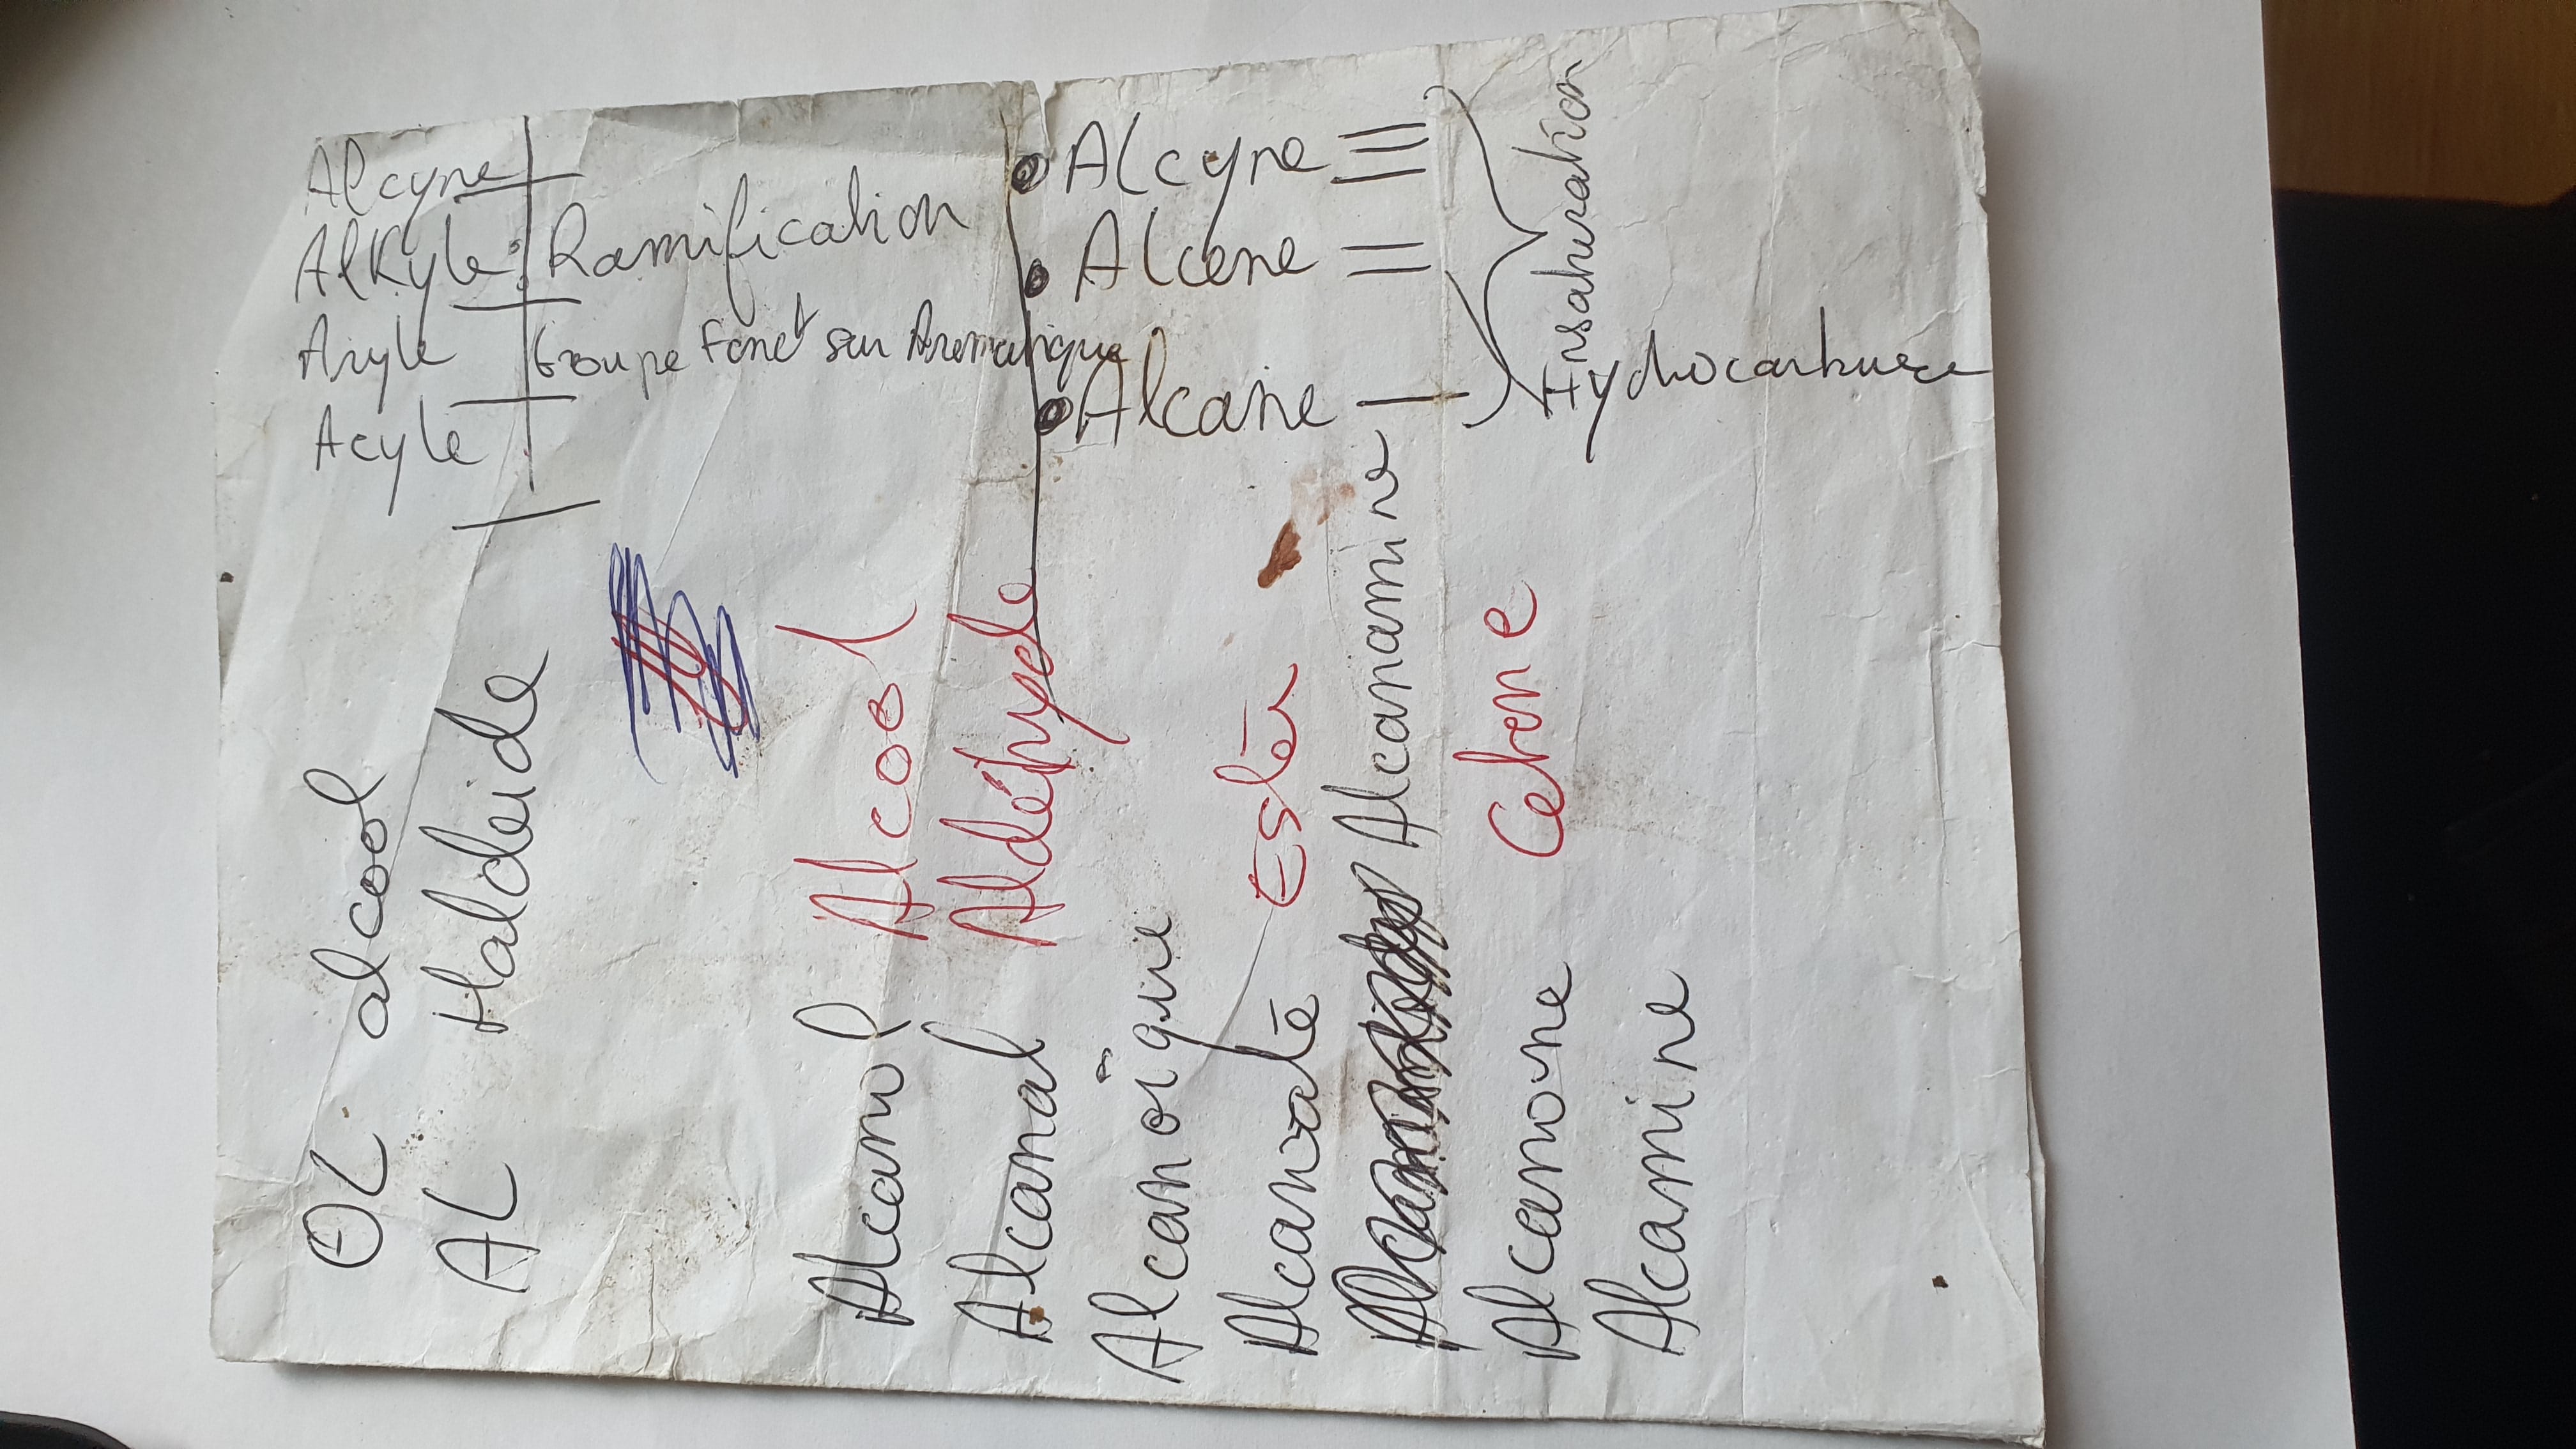 OL alcool
AL Haldeide
Alcanol Alcool
Alcanal Aldéhyde
Alcanoïque
Alcanoate Ester
Alcanamine
Alcanone Cetone
Alcamine
Alcyne
Alkyle : Ramification
Aryle Groupe Fonct sur Aromatique
Acyle
Alcyne ≡
Alcene =
Alcane —
Insaturation
Hydrocarbure